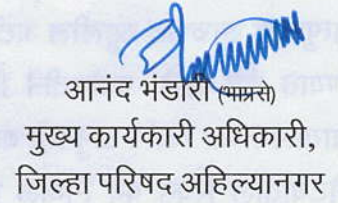 आनंद भंडारी (भाप्रसे)
मुख्य कार्यकारी अधिकारी,
जिल्हा परिषद अहिल्यानगर